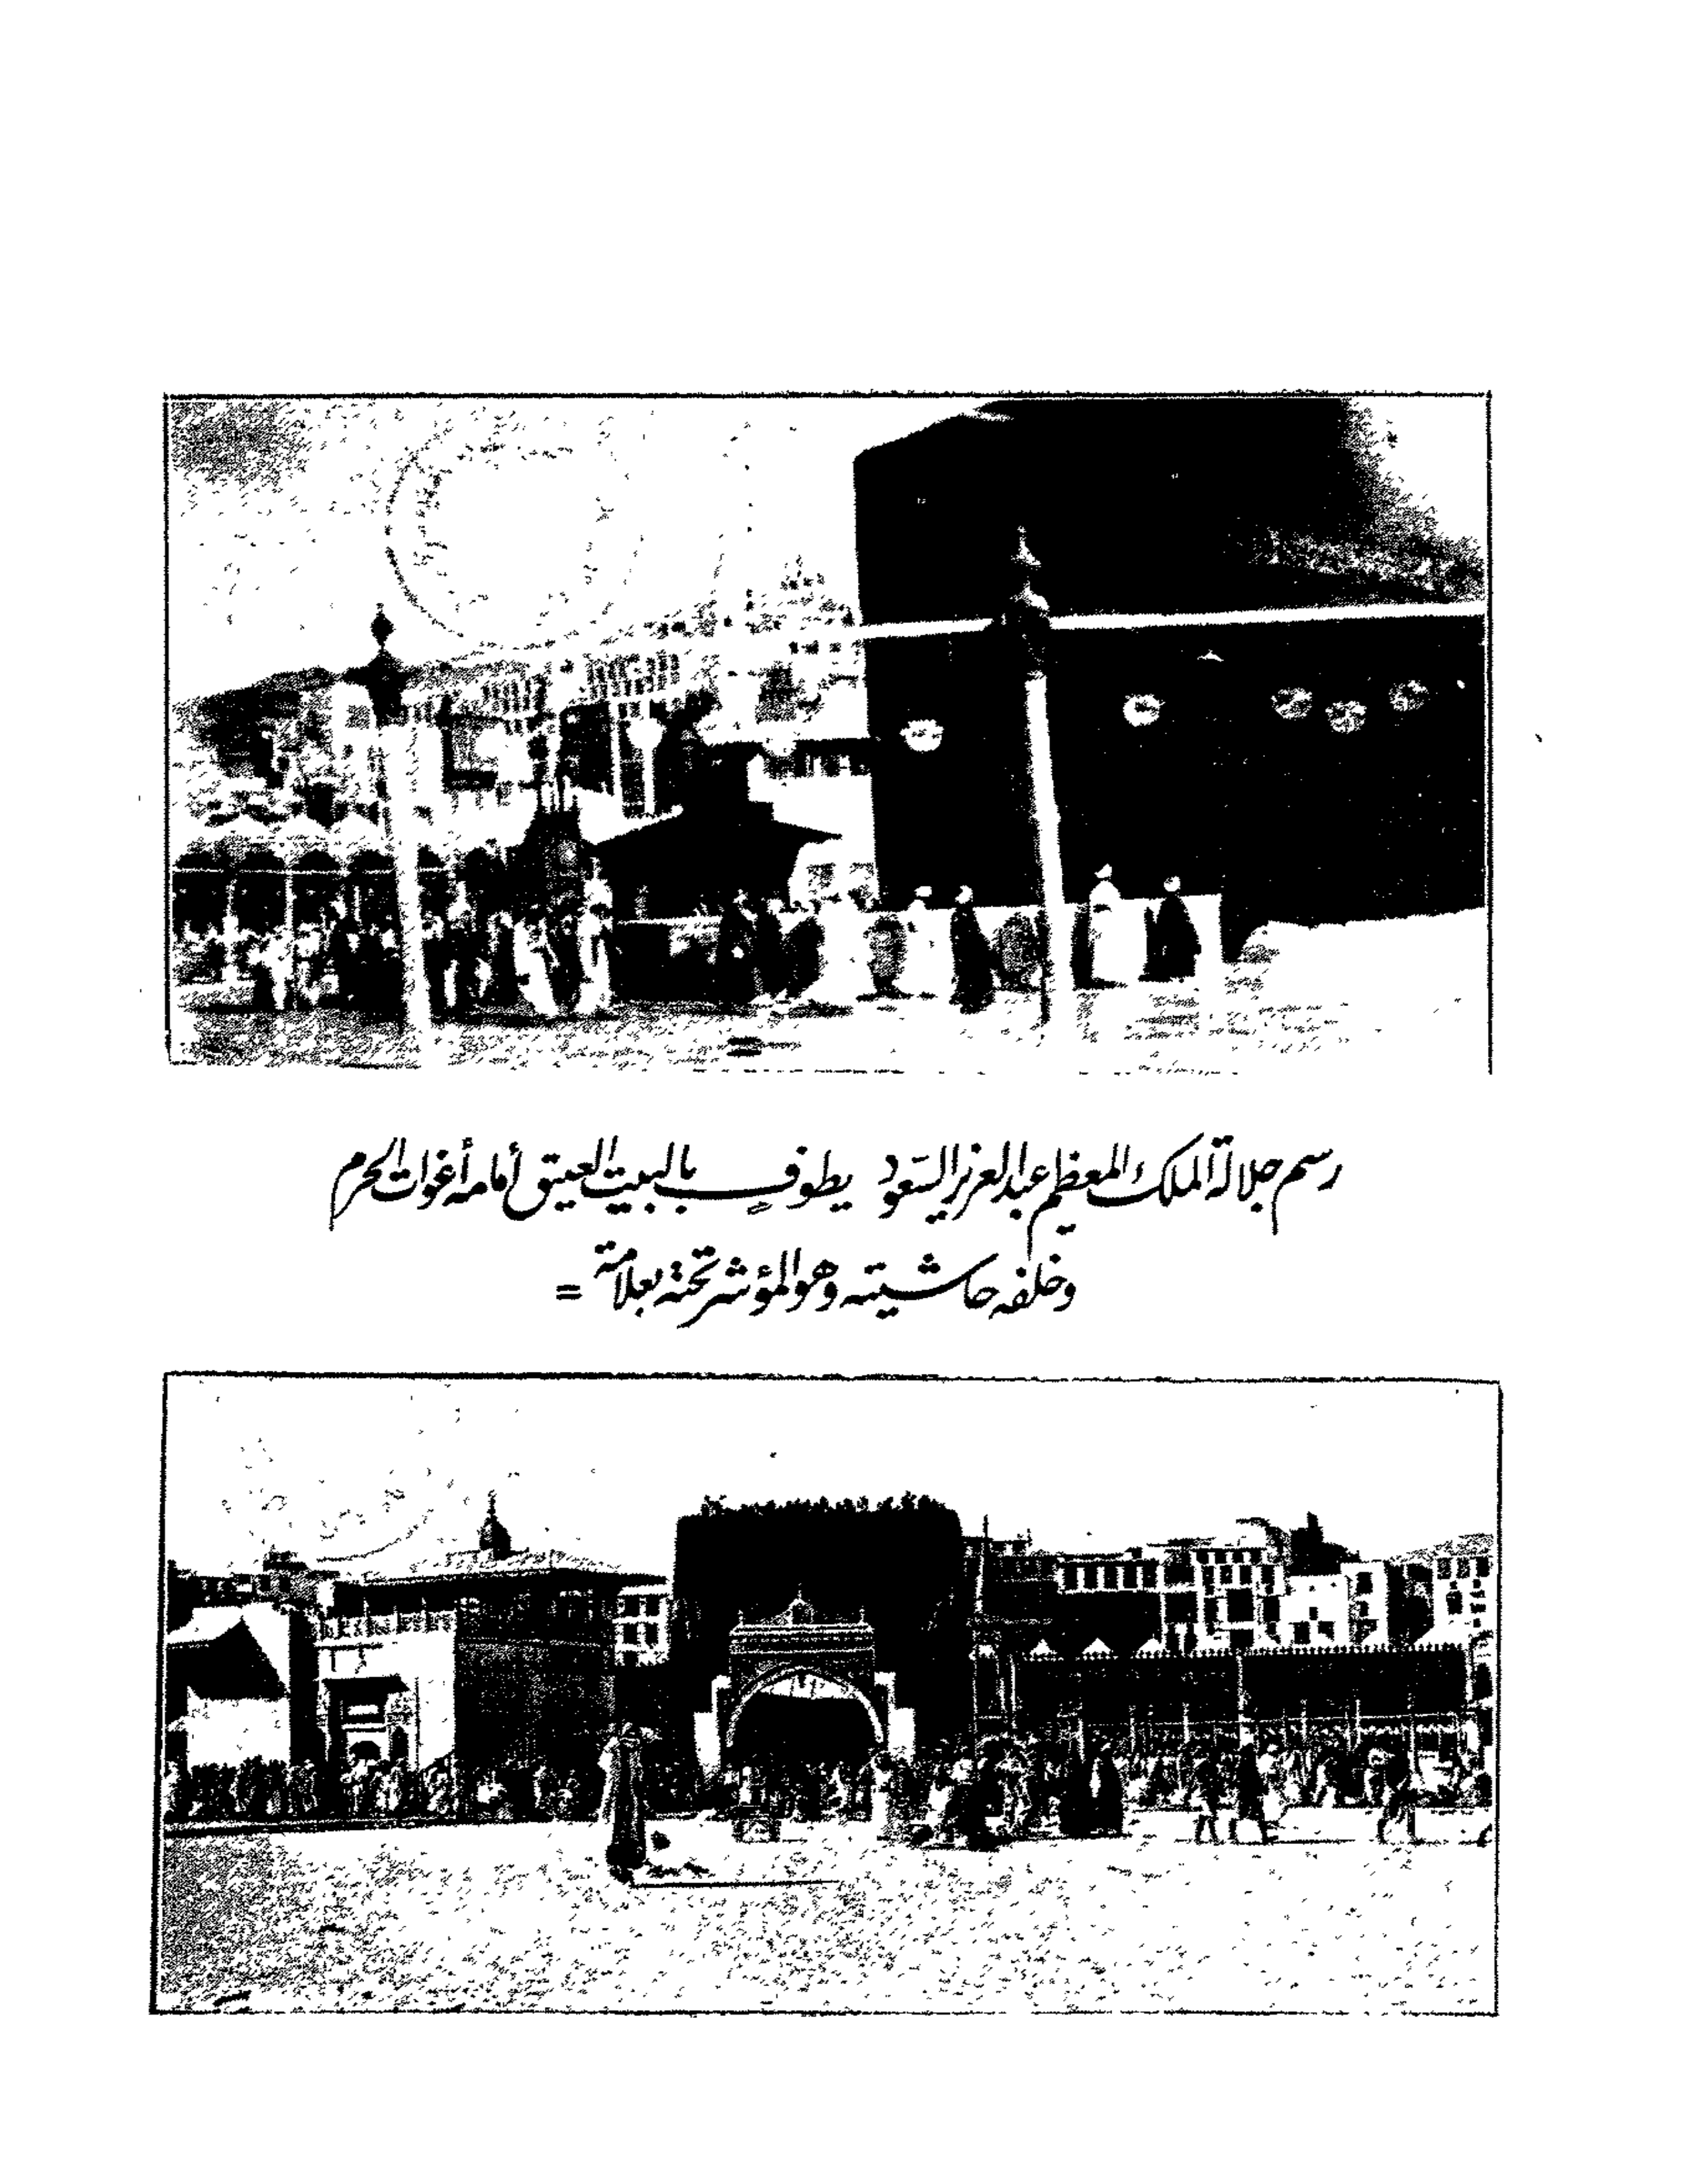 رسم جلالة الملك المعظم عبد العزيز السعود يطوف بالبيت العتيق أمامه أغوات الحرم
وخلفه حاشيته وهو المؤشر تحته بعلامة =